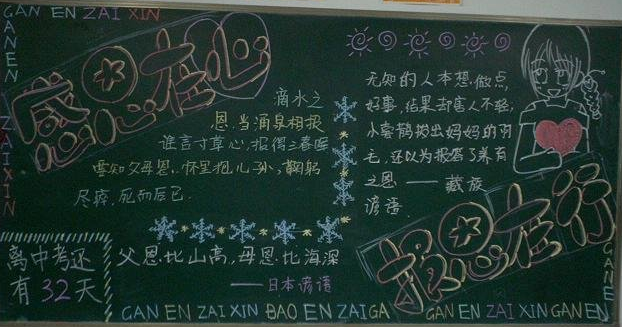 GAN EN ZAI XIN
GAN EN ZAI XIN
感恩在心
滴水之
恩,当涌泉相报
谁言寸草心,报得三春晖
要知父母恩,怀里抱儿孙,鞠躬
尽瘁,死而后已.
无知的人本想做点
好事,结果却害人不轻,
小套鹅拔出妈妈的羽
毛,还以为报答了养育
之恩——藏族
谚语.
报恩在行
离中考还
有32天
父恩比山高,母恩比海深
——日本谚语
GAN EN ZAI XIN BAO EN ZAI GA
GAN EN ZAI XIN GAN EN
GAN E